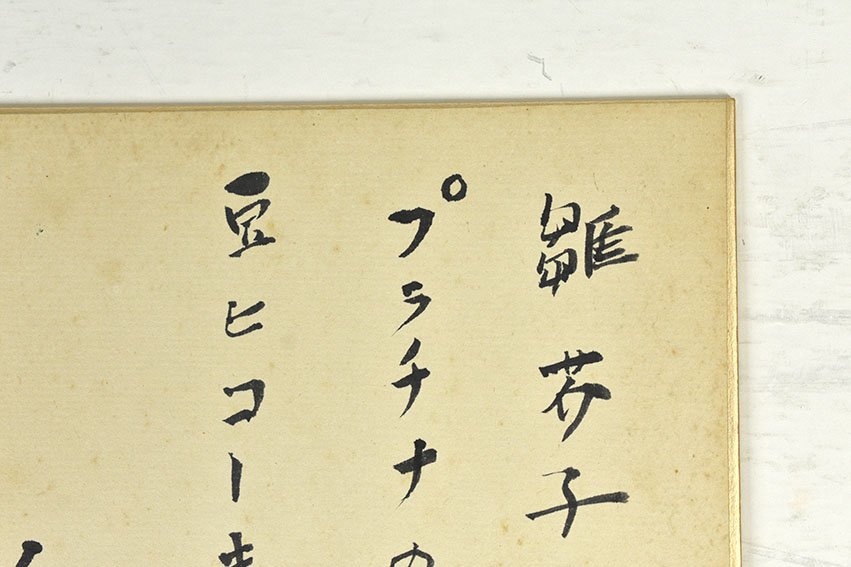 雛芥子
プラチナ
豆ヒコー